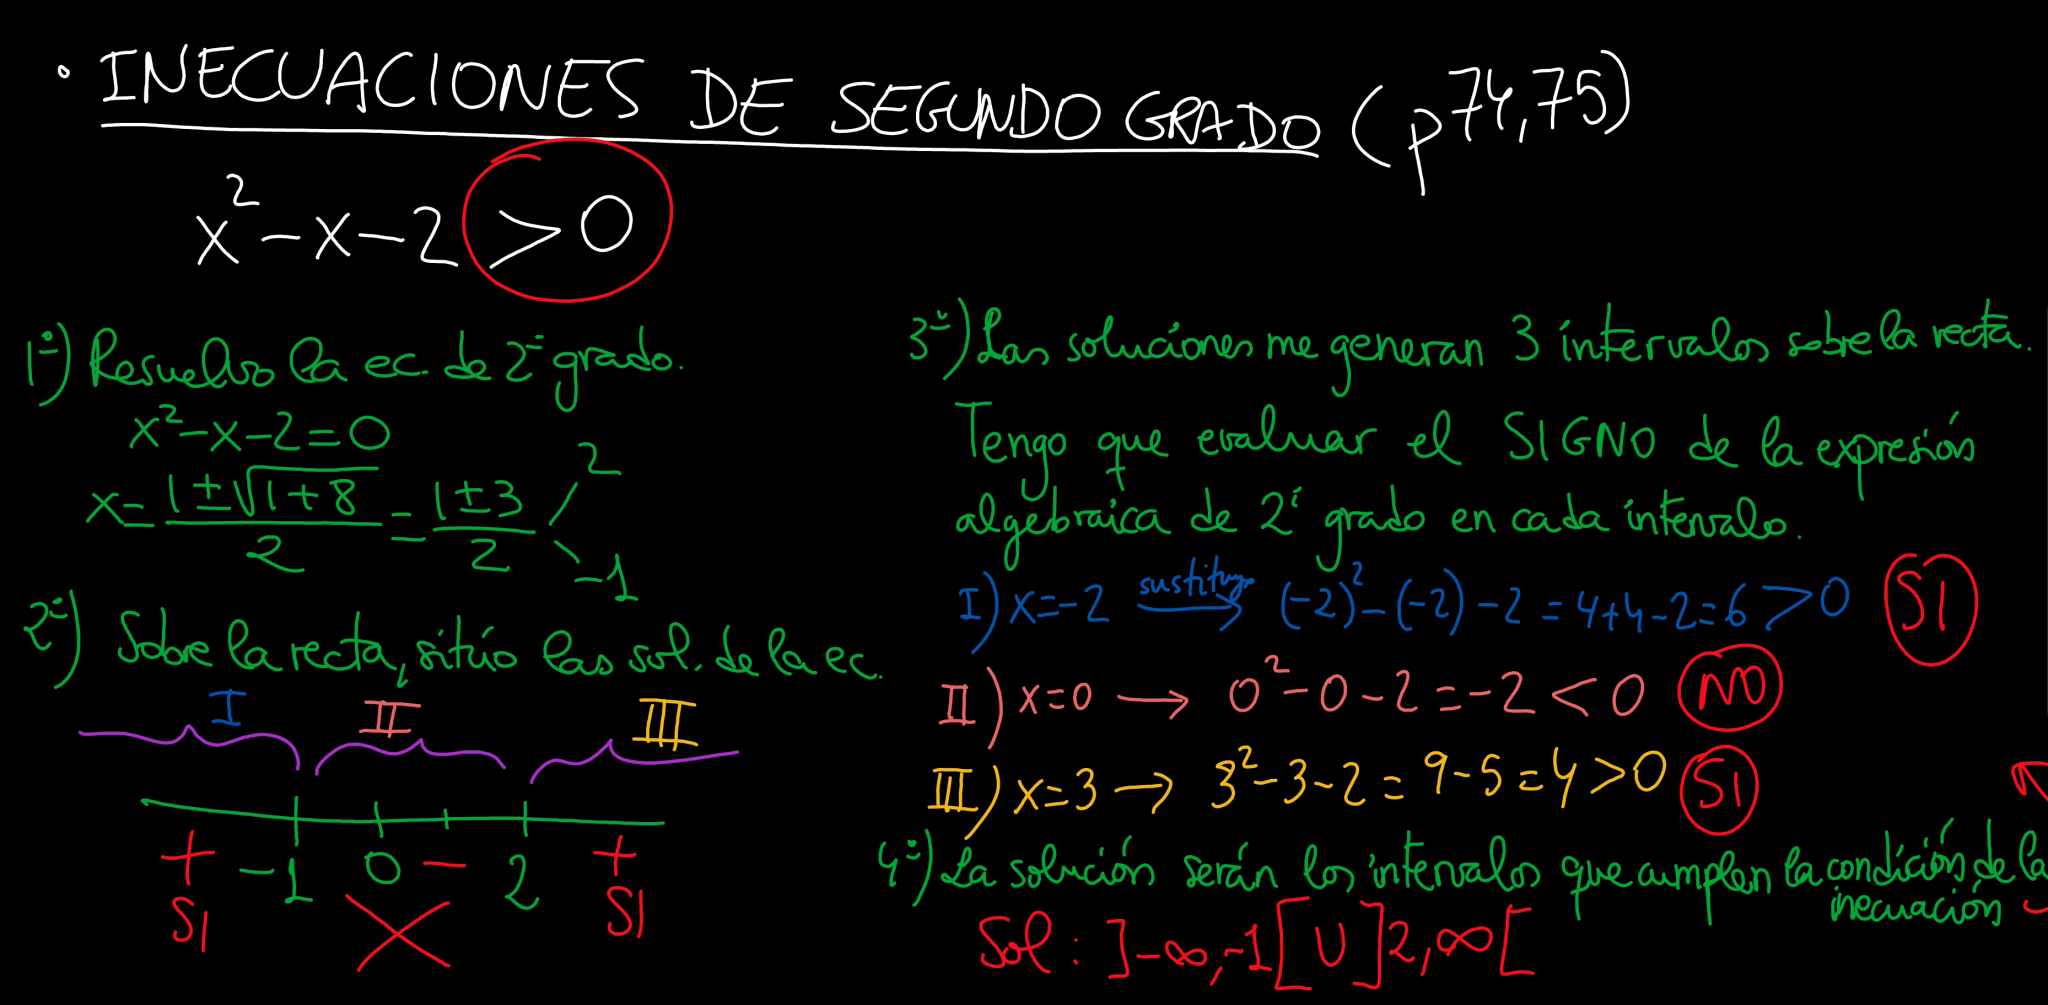 · INECUACIONES DE SEGUNDO GRADO (p 74, 75)
x² - x - 2 > 0
1º) Resuelvo la ec. de 2º grado.
x² - x - 2 = 0
x = (1 ± √(1 + 8)) / 2 = (1 ± 3) / 2
2
-1
2º) Sobre la recta, sitúo las sol. de la ec.
I II III
-1 0 2
+ - +
SI X SI
3º) Las soluciones me generan 3 intervalos sobre la recta.
Tengo que evaluar el SIGNO de la expresión
algebraica de 2º grado en cada intervalo.
I) x = -2 sustituyo → (-2)² - (-2) - 2 = 4 + 4 - 2 = 6 > 0 SI
II) x = 0 → 0² - 0 - 2 = -2 < 0 NO
III) x = 3 → 3² - 3 - 2 = 9 - 5 = 4 > 0 SI
4º) La solución serán los intervalos que cumplen la condición de la
inecuación
Sol: ]-∞, -1[ U ]2, ∞[